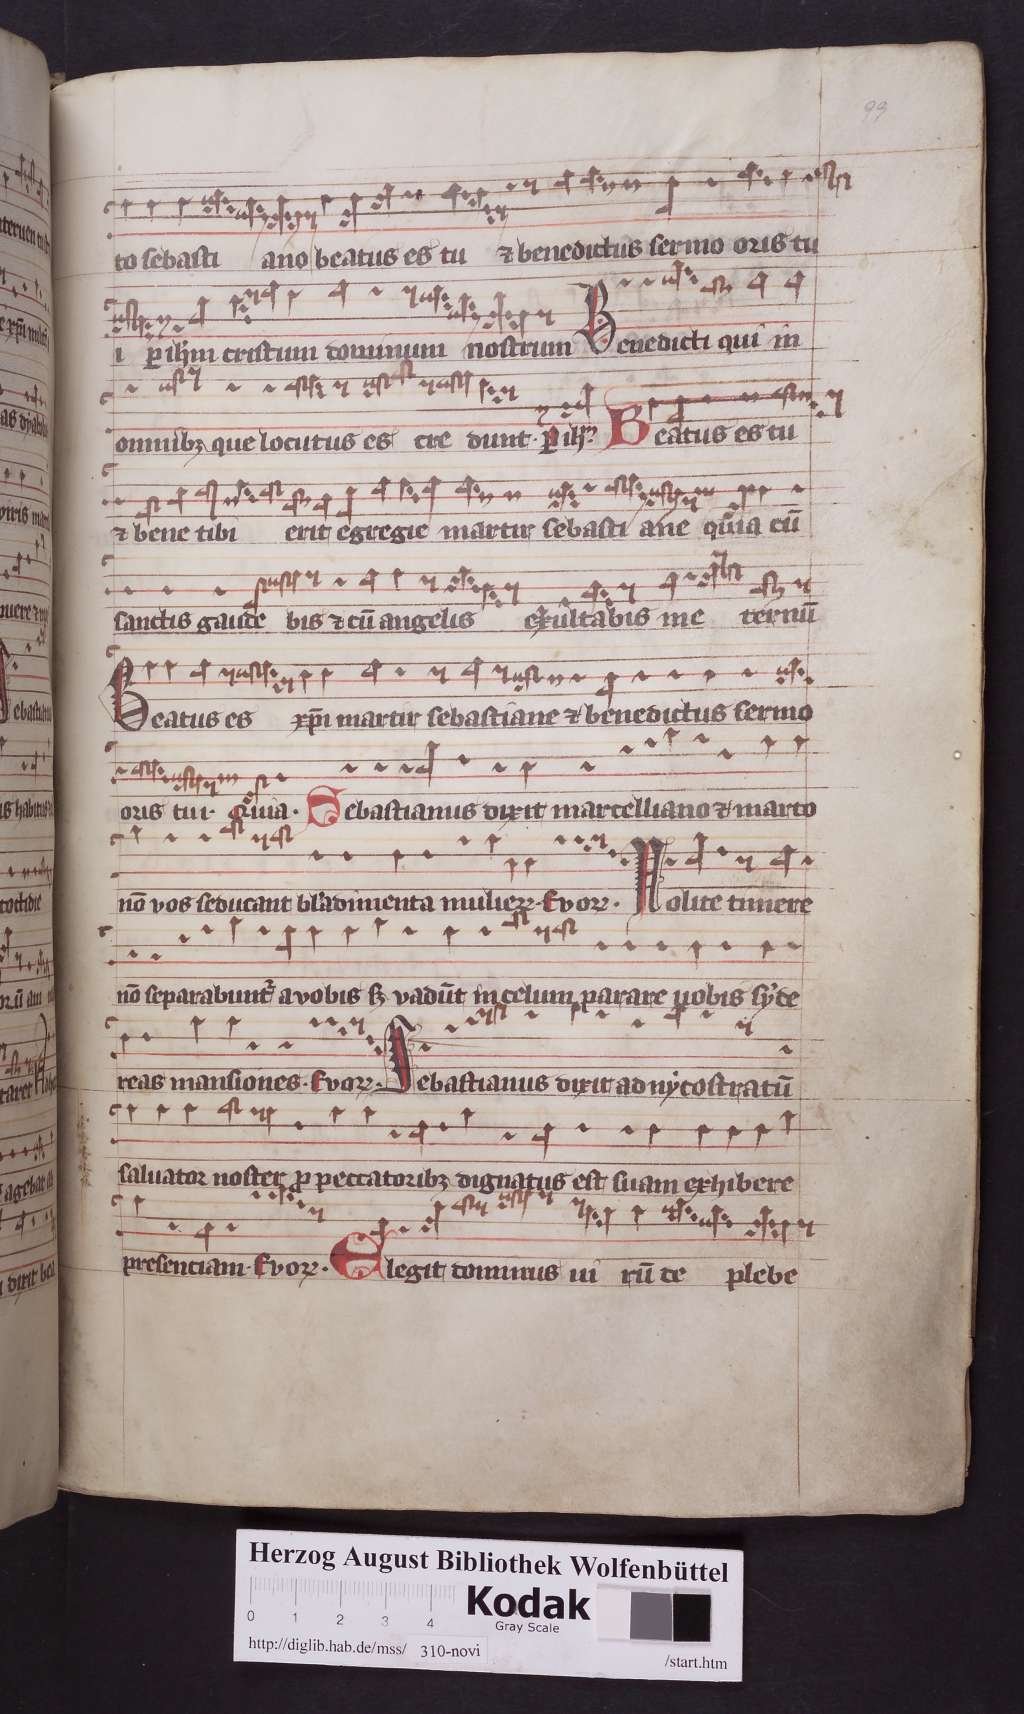 99
to sebasti ano beatus es tu ⁊ benedictus sermo oris tu
i ꝑ ih̄m cristum dominum nostrum Benedicti qui in
omnibꝫ que locutus es cre dunt. ꝑ ih̄
Beatus es tu
⁊ bene tibi erit egregie martir sebasti ane quia cū
sanctis gaude bis ⁊ cū angelis exultabis in e ternū
Beatus es xp̄i martir sebastiane ⁊ benedictus sermo
oris tui. Quia. Sebastianus dixit marcelliano ⁊ marco
nō vos seducant blādimenta mulieꝝ. Evoꝝ. Nolite timere
nō separabunt᷑ a vobis sꝫ vadūt in celum parare vobis syde
reas mansiones. Evoꝝ. Sebastianus dixit ad nycostratū
saluator noster ꝓ peccatoribꝫ dignatus est suam exhibere
presenciam. Evoꝝ. Elegit dominus ui rū de plebe
Herzog August Bibliothek Wolfenbüttel
0 1 2 3 4
Kodak
Gray Scale
http://diglib.hab.de/mss/ 310-novi /start.htm